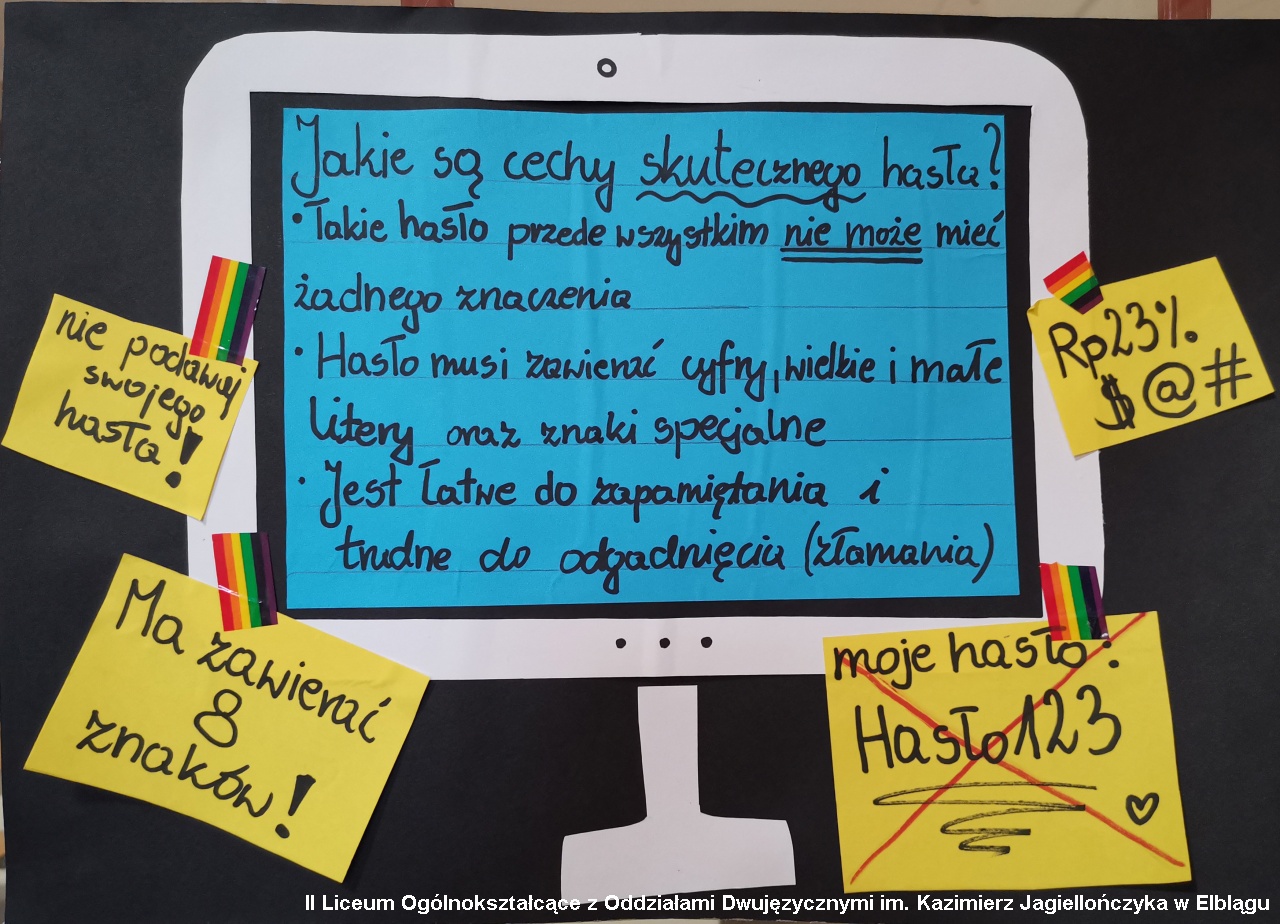 Jakie są cechy skutecznego hasła?
• Takie hasło przede wszystkim nie może mieć
żadnego znaczenia
• Hasło musi zawierać cyfry, wielkie i małe
litery oraz znaki specjalne
• Jest łatwe do zapamiętania i
trudne do odgadnięcia (złamania)
nie podawaj
swojego
hasła!
Rp23%
$@#
Ma zawierać
8
znaków!
moje hasło:
Hasło123
II Liceum Ogólnokształcące z Oddziałami Dwujęzycznymi im. Kazimierz Jagiellończyka w Elblągu